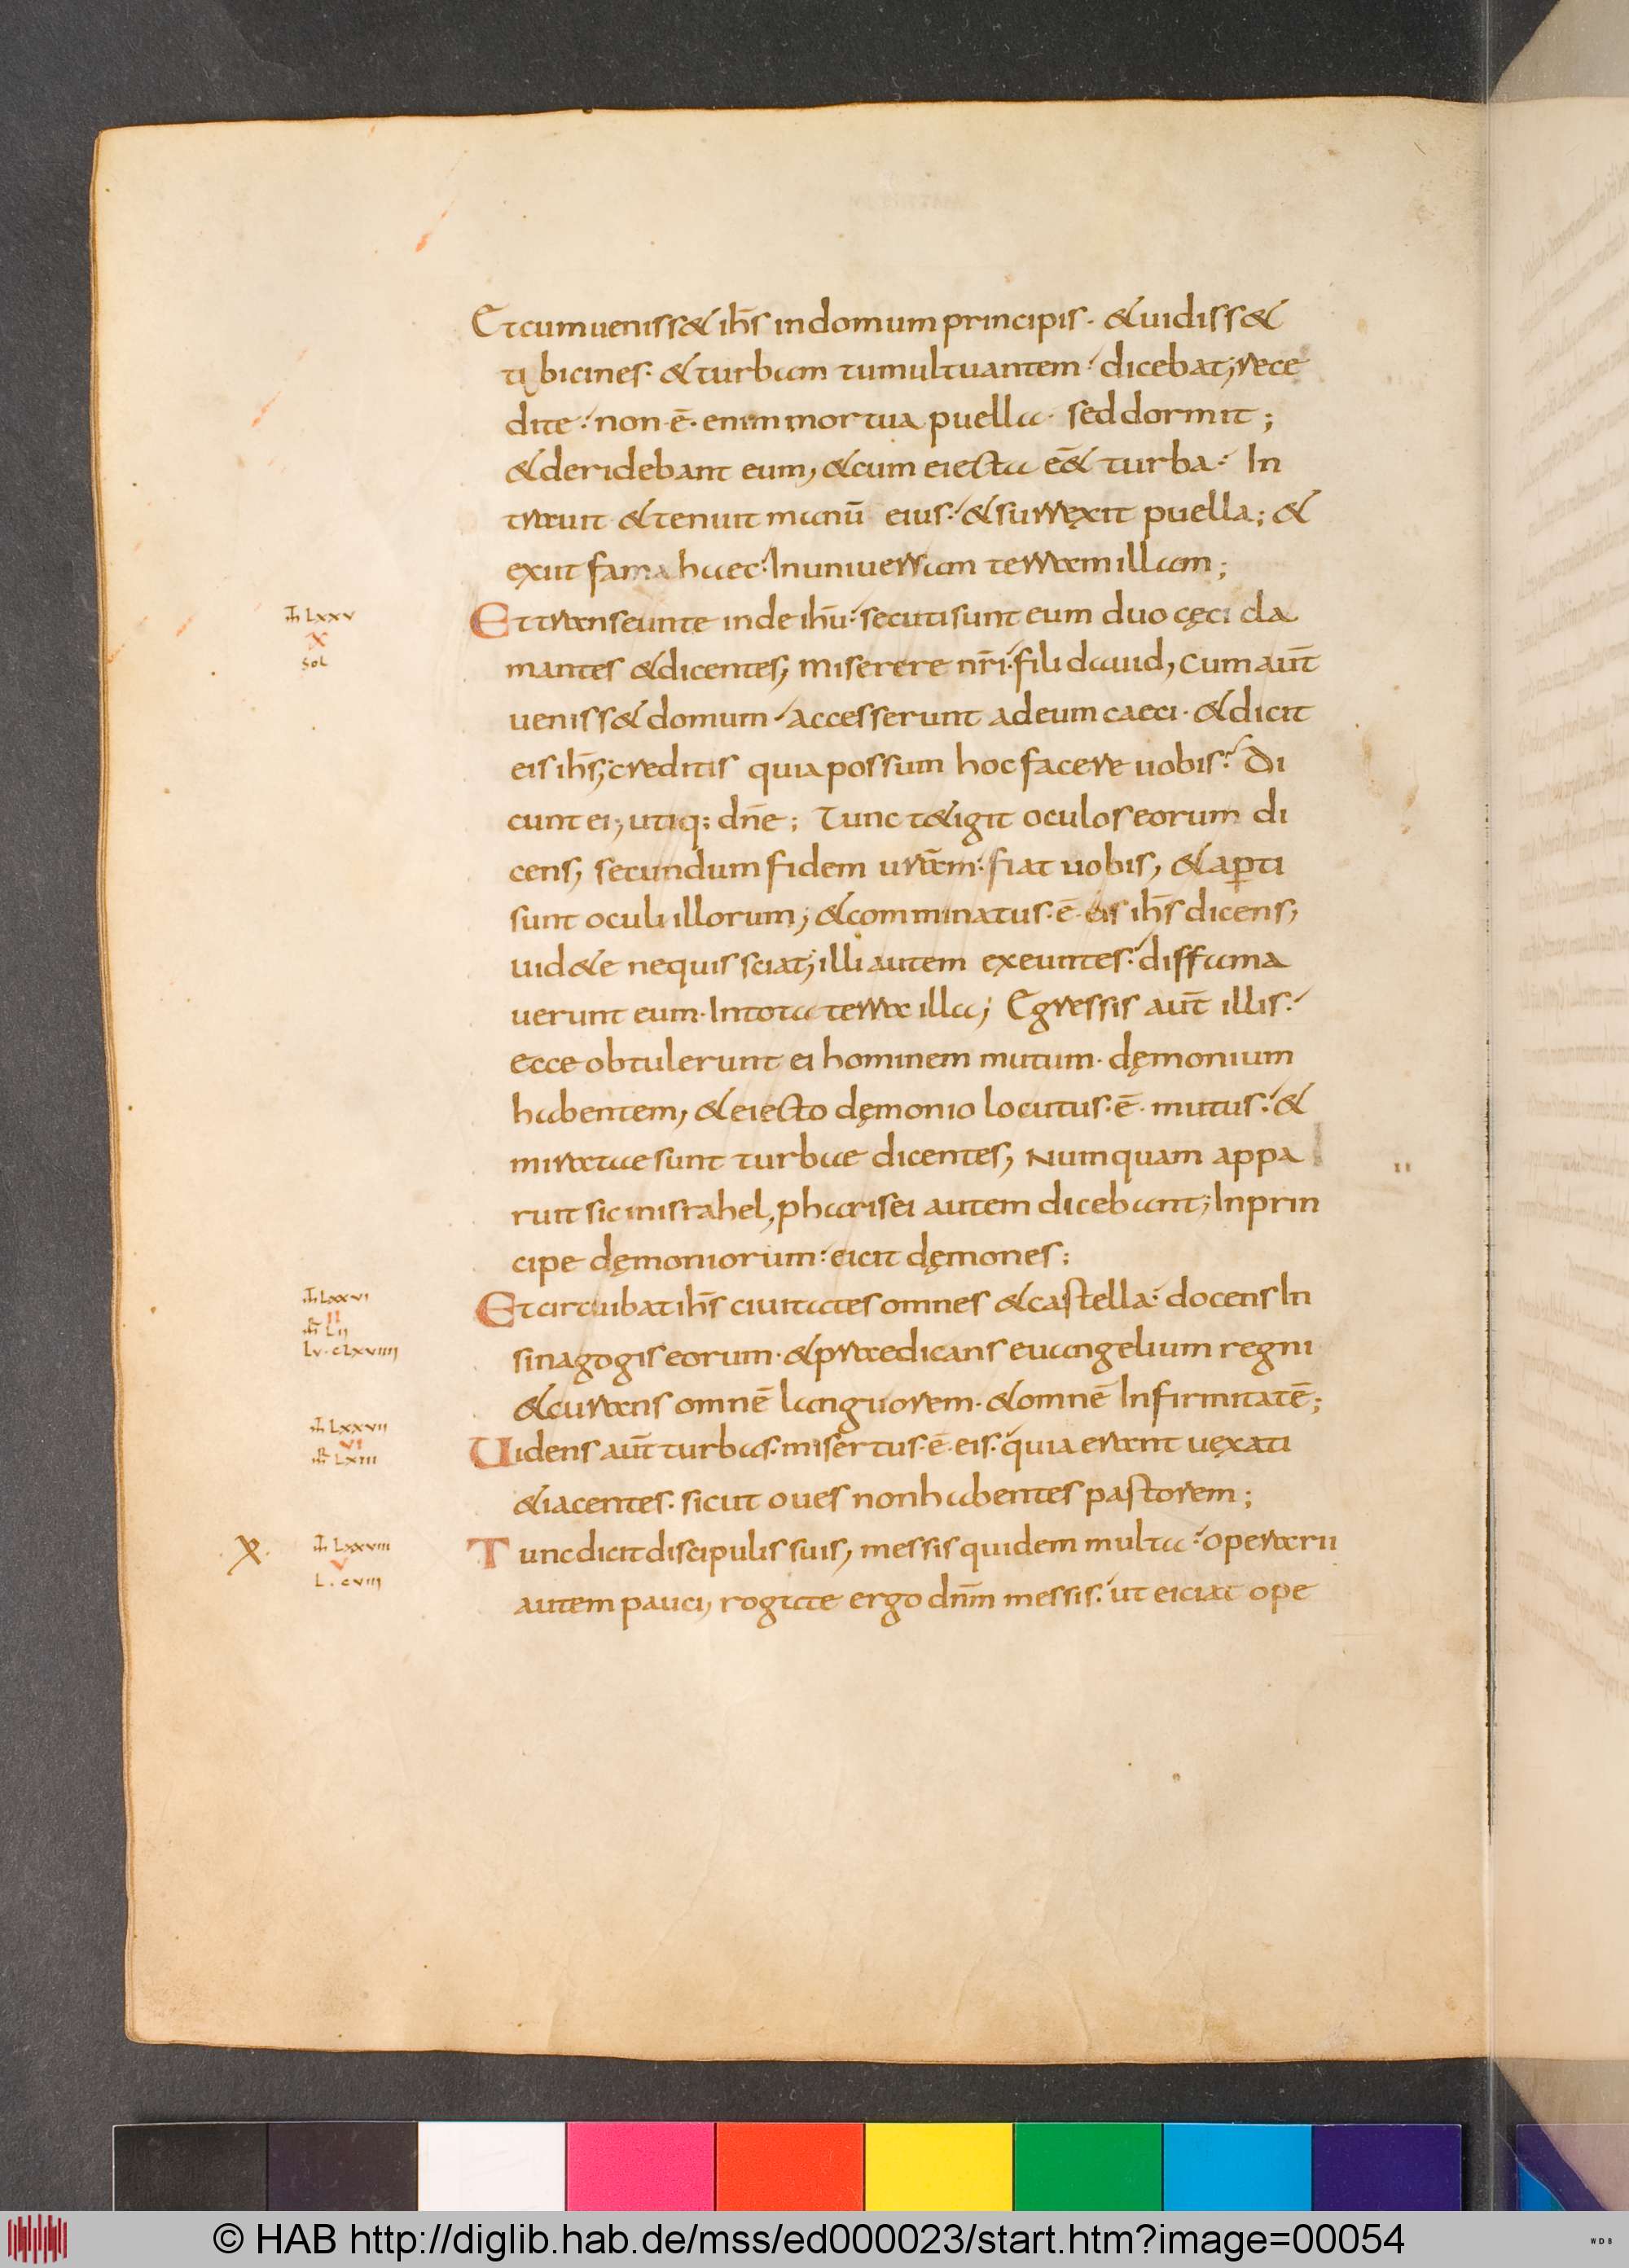 Et cum uenisset ih̄s in domum principis · & uidisset
tybicines · & turbam tumultuantem · dicebat; rece
dite · non · ē · enim mortua puella · sed dormit ;
& deridebant eum, & cum eiecta eēt turba · In
trauit & tenuit manū eius · & surręxit puella; &
exiit fama haec · In uniuersam terram illam ;
ꝳ Lxxv
x
sol
Et transeunte inde ihū · secuti sunt eum duo cęci cla
mantes & dicentes, miserere nr̄i · fili dauid, Cum aut̄
uenisset domum · accesserunt ad eum caeci · & dicit
eis ih̄s; creditis quia possum hoc facere uobis? Di
cunt ei; utiq; dn̄e ; Tunc tetigit oculos eorum di
cens, secundum fidem ur̄am · fiat uobis, & aꝑti
sunt oculi illorum; & comminatus · ē · eis ih̄s dicens,
uidete nequis sciat; illi autem exeuntes · diffama
uerunt eum · In tota terra illa; Egressis aut̄ illis ·
ecce obtulerunt ei hominem mutum · dęmonium
habentem, & eiecto dęmonio locutus · ē · mutus · &
miratae sunt turbae dicentes, Numquam appa
ruit sic in israhel, pharisei autem dicebant; In prin
cipe dęmoniorum · eicit dęmones ;
ꝳ Lxxvi
II
Lii
Lv · cLxviiii
Et circuibat ih̄s ciuitates omnes & castella · docens In
sinagogis eorum · & praedicans euangelium regni
& curans omnē languorem · & omnē Infirmitatē ;
ꝳ Lxxvii
vi
Lxiii
Uidens aut̄ turbas · misertus · ē · eis · quia erant uęxati
& iacentes · sicut oues non habentes pastorem ;
ꝳ Lxxviii
v
L · cviii
Tunc dicit discipulis suis, messis quidem multa · operarii
autem pauci, rogate ergo dn̄m messis · ut eiciat ope
© HAB http://diglib.hab.de/mss/ed000023/start.htm?image=00054